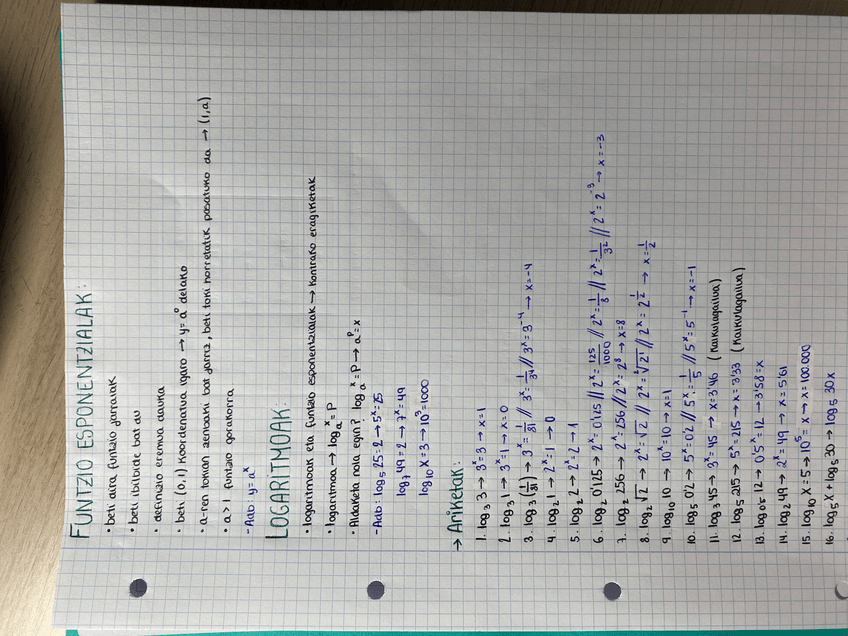 FUNTZIO ESPONENTZIALAK:
• beti dira funtzio jarraiak
• beti ibilbide bat du
• definizio eremua dauka
• beti (0,1) koordenatua igaro → y=a⁰ delako
• a-ren tokian zenbaki bat jarriz, beti toki horretatik pasatuko da → (1,a)
• a>1 funtzio gorakorra
- Adb y=aˣ
LOGARITMOAK:
• logaritmoak eta funtzio esponentzialak → kontrako eragiketak
• logaritmoa → logₐˣ = P
• Aldaketa nola egin? logₐˣ=P → aᴾ=x
- Adb: log₅ 25=2 → 5ˣ=25
log₇ 49=2 → 7ˣ=49
log₁₀ x=3 → 10³=1000
→ Ariketak:
1. log₃ 3 → 3ˣ=3 → x=1
2. log₃ 1 → 3ˣ=1 → x=0
3. log₃ (1/81) → 3ˣ=1/81 // 3ˣ=1/3⁴ // 3ˣ=3⁻⁴ → x=-4
4. log₂ 1 → 2ˣ=1 → 0
5. log₂ 2 → 2ˣ=2 → 1
6. log₂ 0'125 → 2ˣ=0'125 // 2ˣ=125/1000 // 2ˣ=1/8 // 2ˣ=1/3² // 2ˣ=2⁻³ → x=-3
7. log₂ 256 → 2ˣ=256 // 2ˣ=2⁸ → x=8
8. log₂ √2 → 2ˣ=√2 // 2ˣ=²√2¹ // 2ˣ=2^1/2 → x=1/2
9. log₁₀ 10 → 10ˣ=10 → x=1
10. log₅ 0'2 → 5ˣ=0'2 // 5ˣ=1/5 // 5ˣ=5⁻¹ → x=-1
11. log₃ 45 → 3ˣ=45 → x=3'46 (kalkulagailua)
12. log₅ 215 → 5ˣ=215 → x=3'33 (kalkulagailua)
13. log₀'₅ 12 → 0'5ˣ=12 → 3'58=x
14. log₂ 49 → 2ˣ=49 → x=5'61
15. log₁₀ x=5 → 10⁵=x → x=100.000
16. log₅ x + log₅ 30 → log₅ 30x